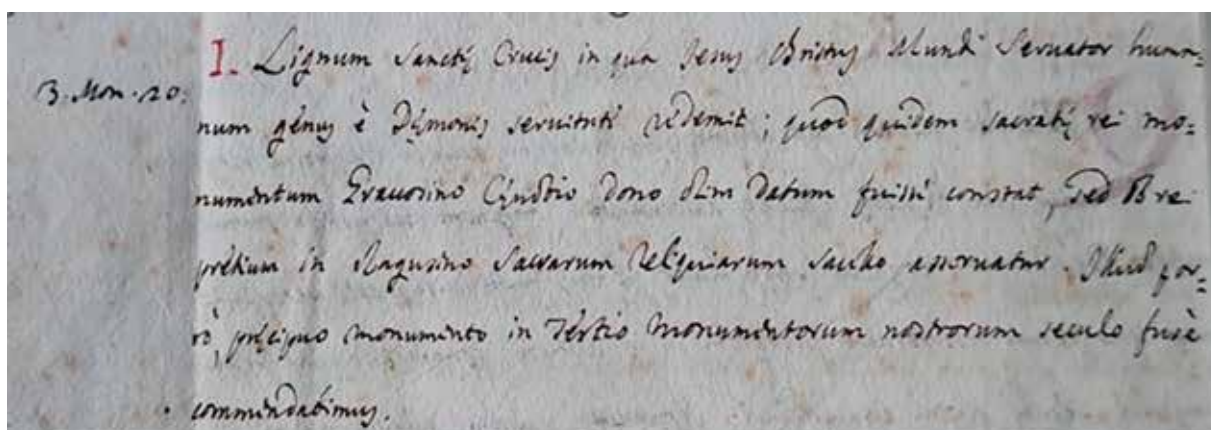 I. Lignum Sanctę Crucis in qua Jesus Christus Mundi Servator huma=
3. Mon. 20.
num genus è Dęmonis servituti redemit; quod quidem sacratę rei mo=
numentum Gravosino Cęnobio dono olim datum fuisse constat, sed
pretium in Ragusino Sacrarum Reliquiarum asservatur. Illud por=
rò pręcipuo monumento in Tertio monumentorum nostrorum seculo fusè
commendabimus.